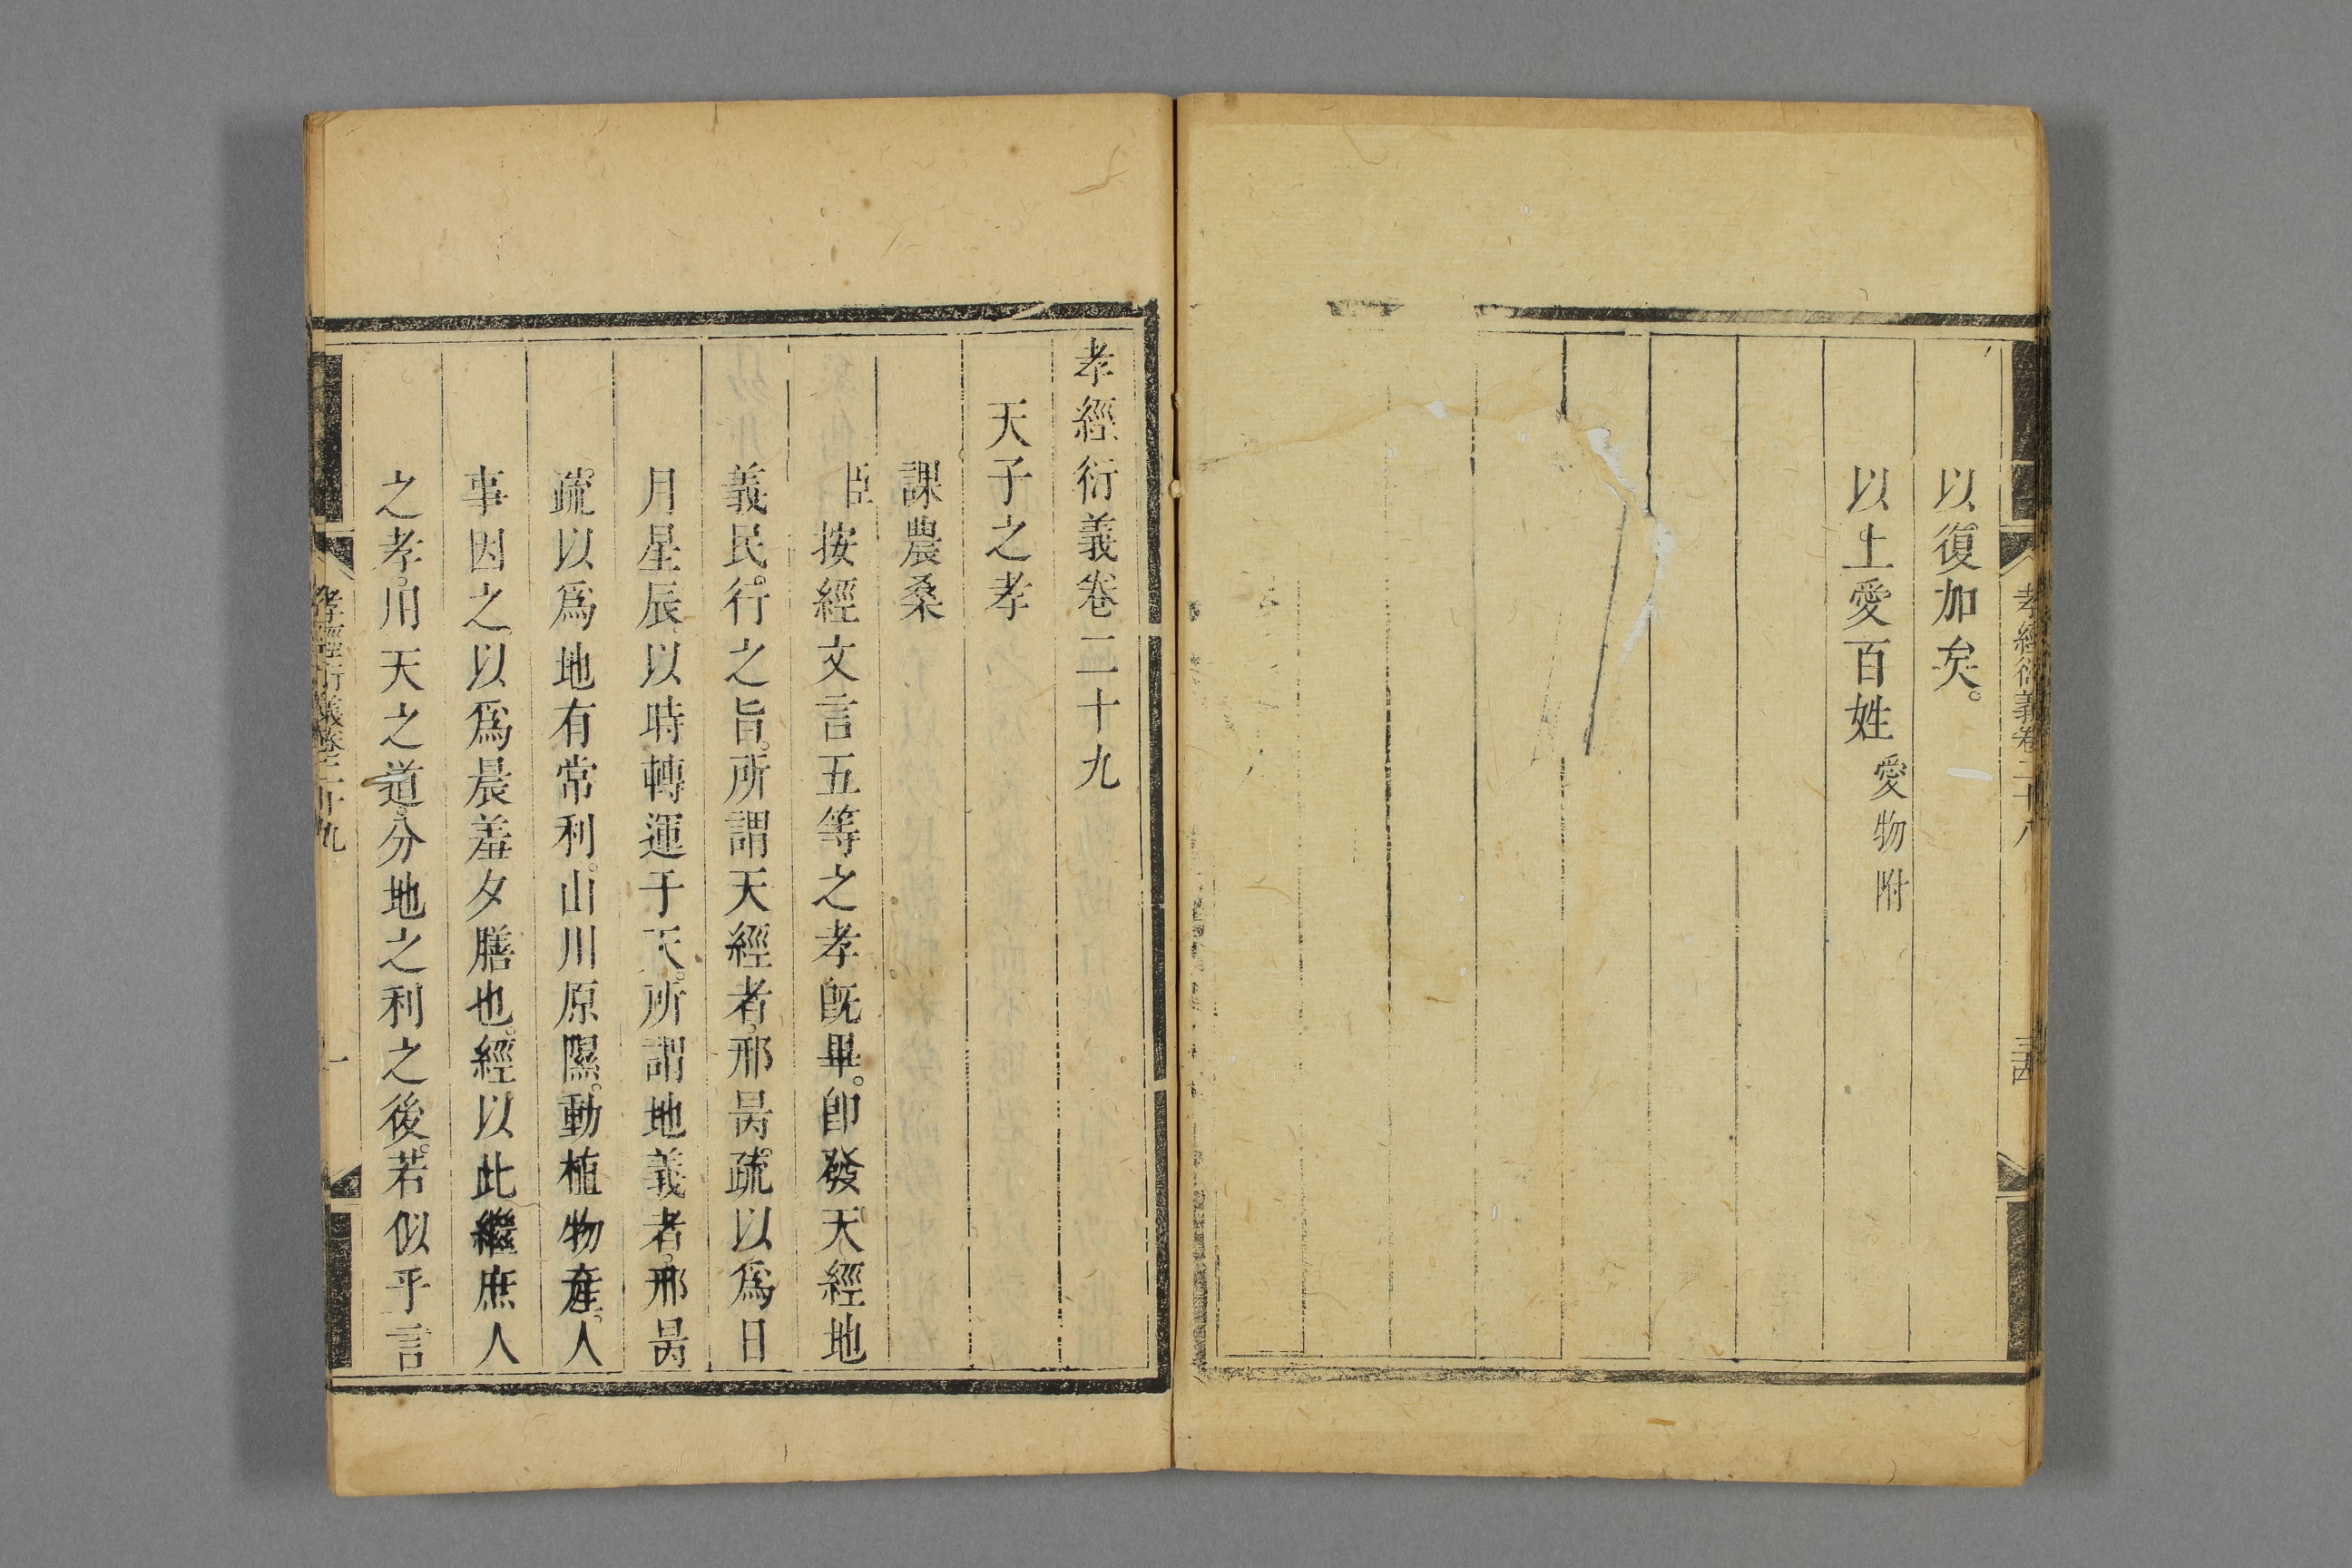 孝經衍義卷二十八
三十四
以復加矣。
以上愛百姓愛物附
孝經衍義卷二十九
天子之孝
課農桑
臣按經文言五等之孝旣畢。卽發天經地
義民。行之旨。所謂天經者。邢昺疏以爲日
月星辰以時轉運于天。所謂地義者。邢昺
疏以爲地有常利。山川原隰。動植物產。人
事因之以爲晨羞夕膳也。經以此繼庶人
之孝。用天之道。分地之利之後。若似乎言
孝經衍義卷二十九
一